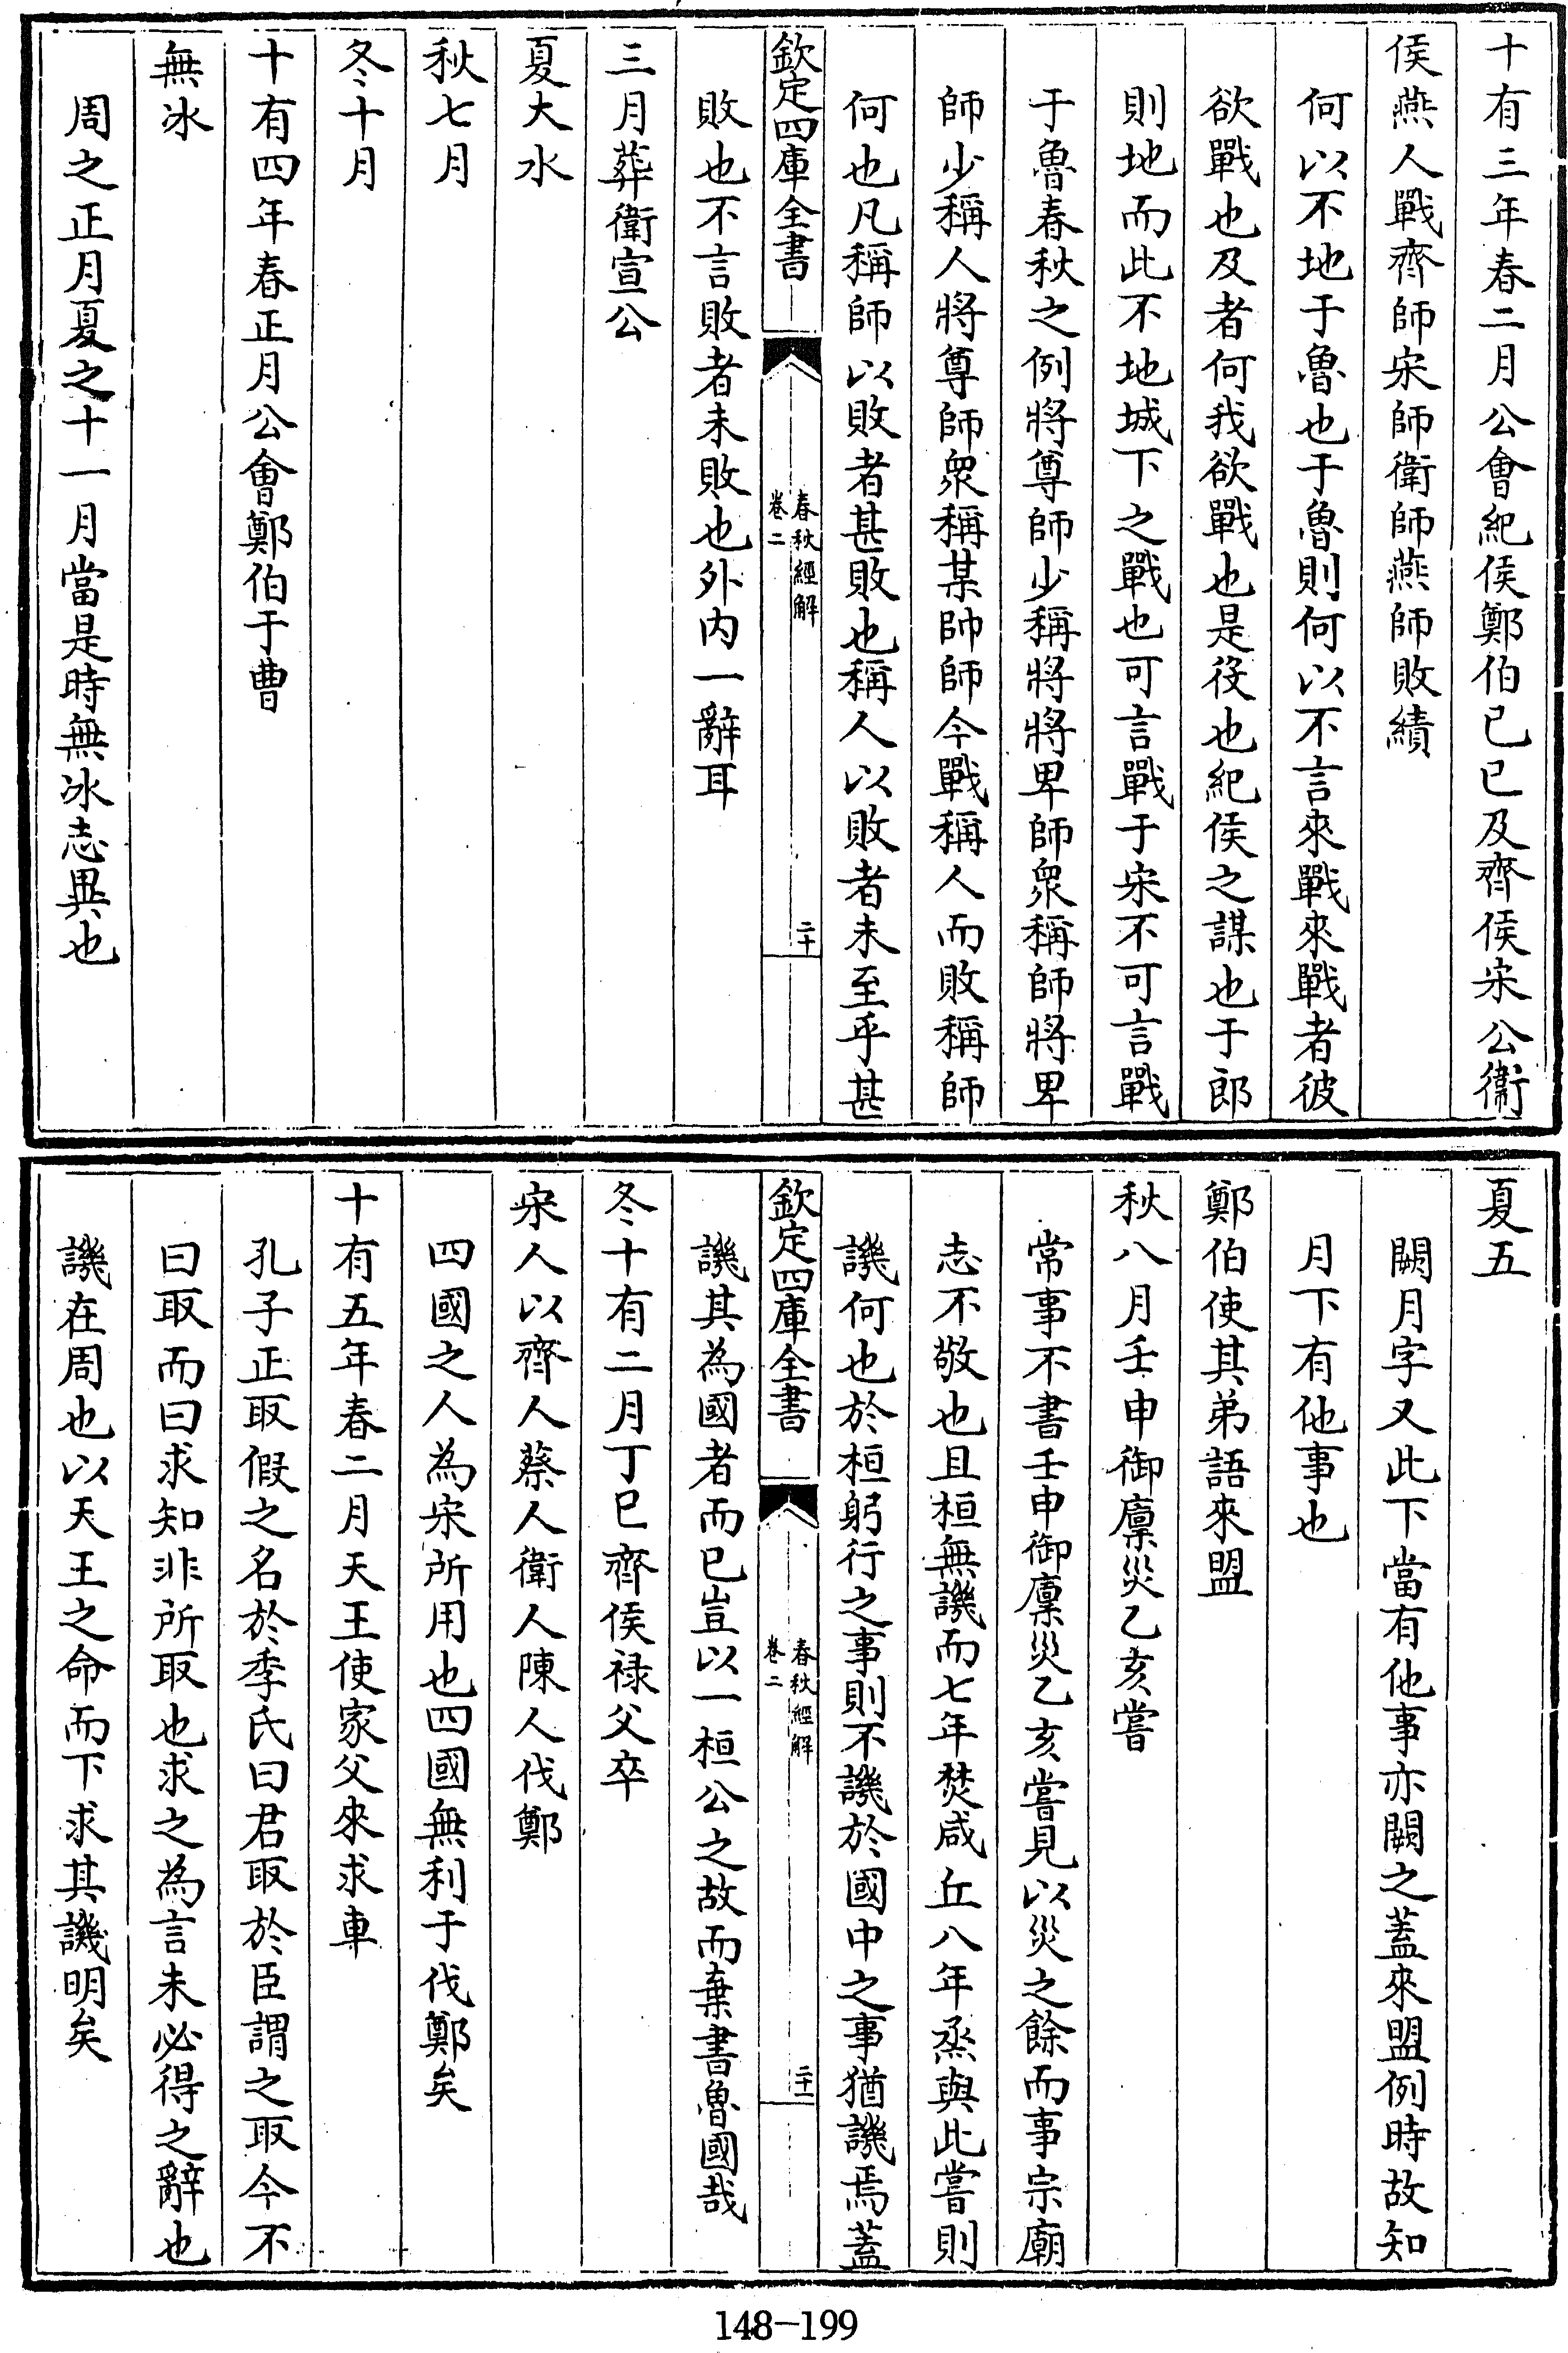 十有三年春二月公會紀侯鄭伯已已及齊侯宋公衞
侯燕人戰齊師宋師衛師燕師敗績
何以不地于魯也于魯則何以不言來戰來戰者彼
欲戰也及者何我欲戰也是役也紀侯之謀也于郎
則地而此不地城下之戰也可言戰于宋不可言戰
于魯春秋之例將尊師少稱將將卑師衆稱師將卑
師少稱人將尊師衆稱某帥師今戰稱人而敗稱師
何也凡稱師以敗者甚敗也稱人以敗者未至乎甚
欽定四庫全書
春秋經解
卷二
二十
敗也不言敗者未敗也外内一辭耳
三月葬衛宣公
夏大水
秋七月
冬十月
十有四年春正月公會鄭伯于曹
無冰
周之正月夏之十一月當是時無冰志異也
夏五
闕月字又此下當有他事亦闕之蓋來盟例時故知
月下有他事也
鄭伯使其弟語來盟
秋八月壬申御廩災乙亥嘗
常事不書壬申御廩災乙亥嘗見以災之餘而事宗廟
志不敬也且桓無譏而七年焚咸丘八年烝與此嘗則
譏何也於桓躬行之事則不譏於國中之事猶譏焉蓋
欽定四庫全書
春秋經解
卷二
二十一
譏其為國者而已豈以一桓公之故而棄書魯國哉
冬十有二月丁巳齊侯祿父卒
宋人以齊人蔡人衛人陳人伐鄭
四國之人為宋所用也四國無利于伐鄭矣
十有五年春二月天王使家父來求車
孔子正取假之名於季氏曰君取於臣謂之取今不
曰取而曰求知非所取也求之為言未必得之辭也
譏在周也以天王之命而下求其譏明矣
148-199